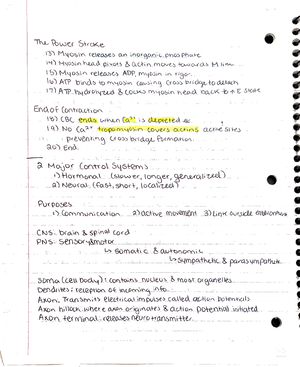 The Power Stroke
13) Myosin releases an inorganic phosphate
14) Myosin head pivots & actin moves towards M line
15) Myosin releases ADP, myosin in rigor
16) ATP binds to myosin causing crossbridge to detach
17) ATP hydrolyzed & cocks myosin head back to ↑ E state
End of Contraction
18) CBC ends when Ca²⁺ is depleted
19) No Ca²⁺ tropomyosin covers actins active sites
preventing crossbridge formation
20) End.
2 Major Control Systems
1) Hormonal (slower, longer, generalized)
2) Neural (Fast, short, localized)
Purposes
1) Communication 2) active movement 3) Link outside
CNS: brain & spinal cord
PNS: Sensory & motor
↳ somatic & autonomic
↳ Sympathetic & parasympathetic
Soma (cell body): contains nucleus & most organelles
Dendrites: reception of incoming info
Axon: Transmits electrical impulses called action potentials
Axon hillock: where axon originates & action potential initiated
Axon terminal: releases neurotransmitter